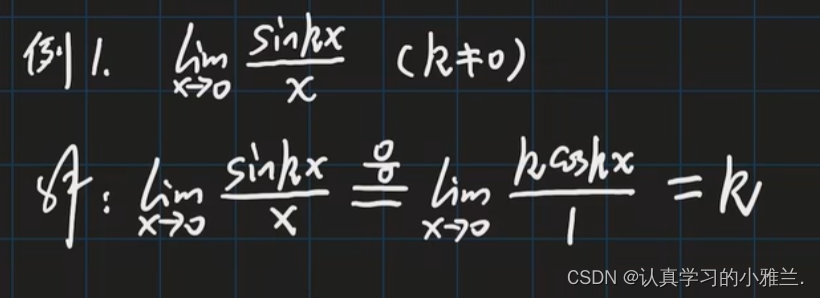 例1. lim x→0 sinkx/x (k≠0)
解: lim x→0 sinkx/x =(0/0) lim x→0 kcoskx/1 = k
CSDN @认真学习的小雅兰.